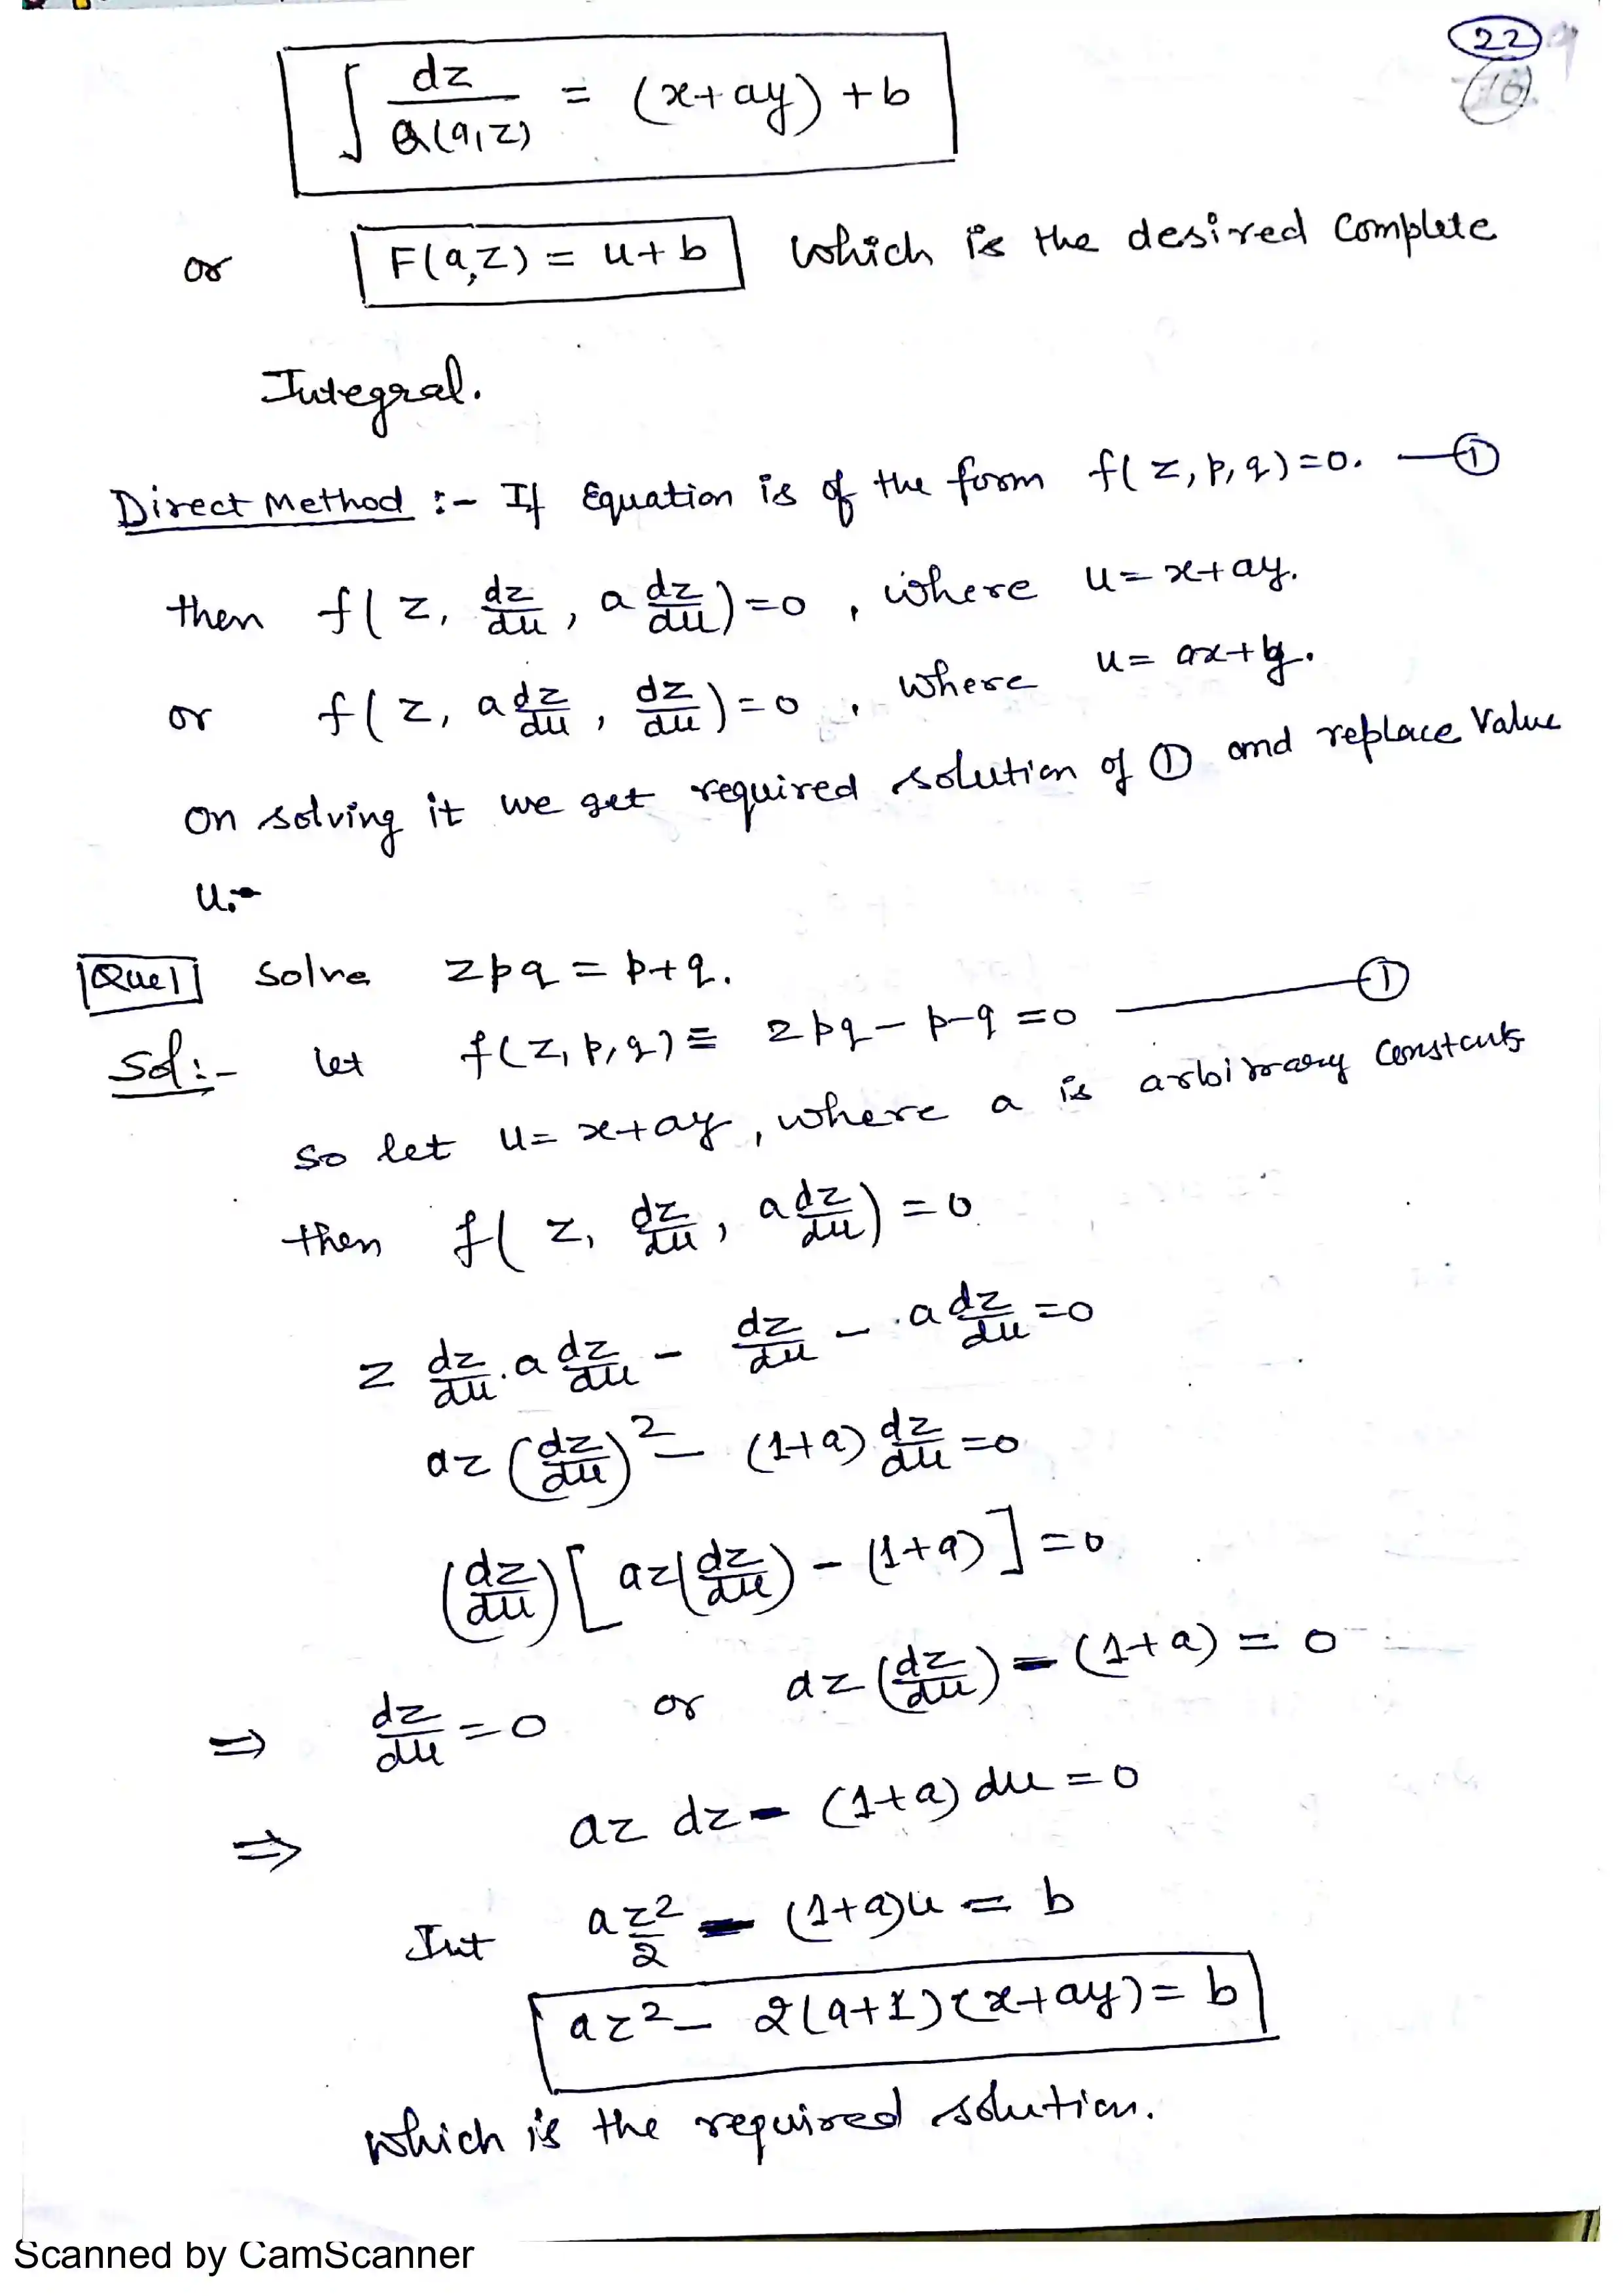 22
∫ dz/Q(a,z) = (x+ay) + b
or F(a,z) = u+b which is the desired Complete
Integral.
Direct Method :- If Equation is of the form f(z, p, q)=0. — ①
then f(z, dz/du, a dz/du)=0, where u= x+ay.
or f(z, a dz/du, dz/du)=0, where u= ax+y.
On solving it we get required solution of ① and replace Value
u.
Que 1 Solve zpq = p+q.
Sol:- let f(z, p, q) ≡ zpq - p-q =0 — ①
So let u= x+ay, where a is arbitrary Constants
then f(z, dz/du, a dz/du) = 0
z dz/du . a dz/du - dz/du - a dz/du =0
az (dz/du)² - (1+a) dz/du =0
(dz/du) [ az(dz/du) - (1+a) ] =0
⇒ dz/du =0 or az (dz/du) - (1+a) = 0
⇒ az dz - (1+a) du = 0
Int a z²/2 - (1+a)u = b
az² - 2(a+1)(x+ay) = b
which is the required solution.
Scanned by CamScanner